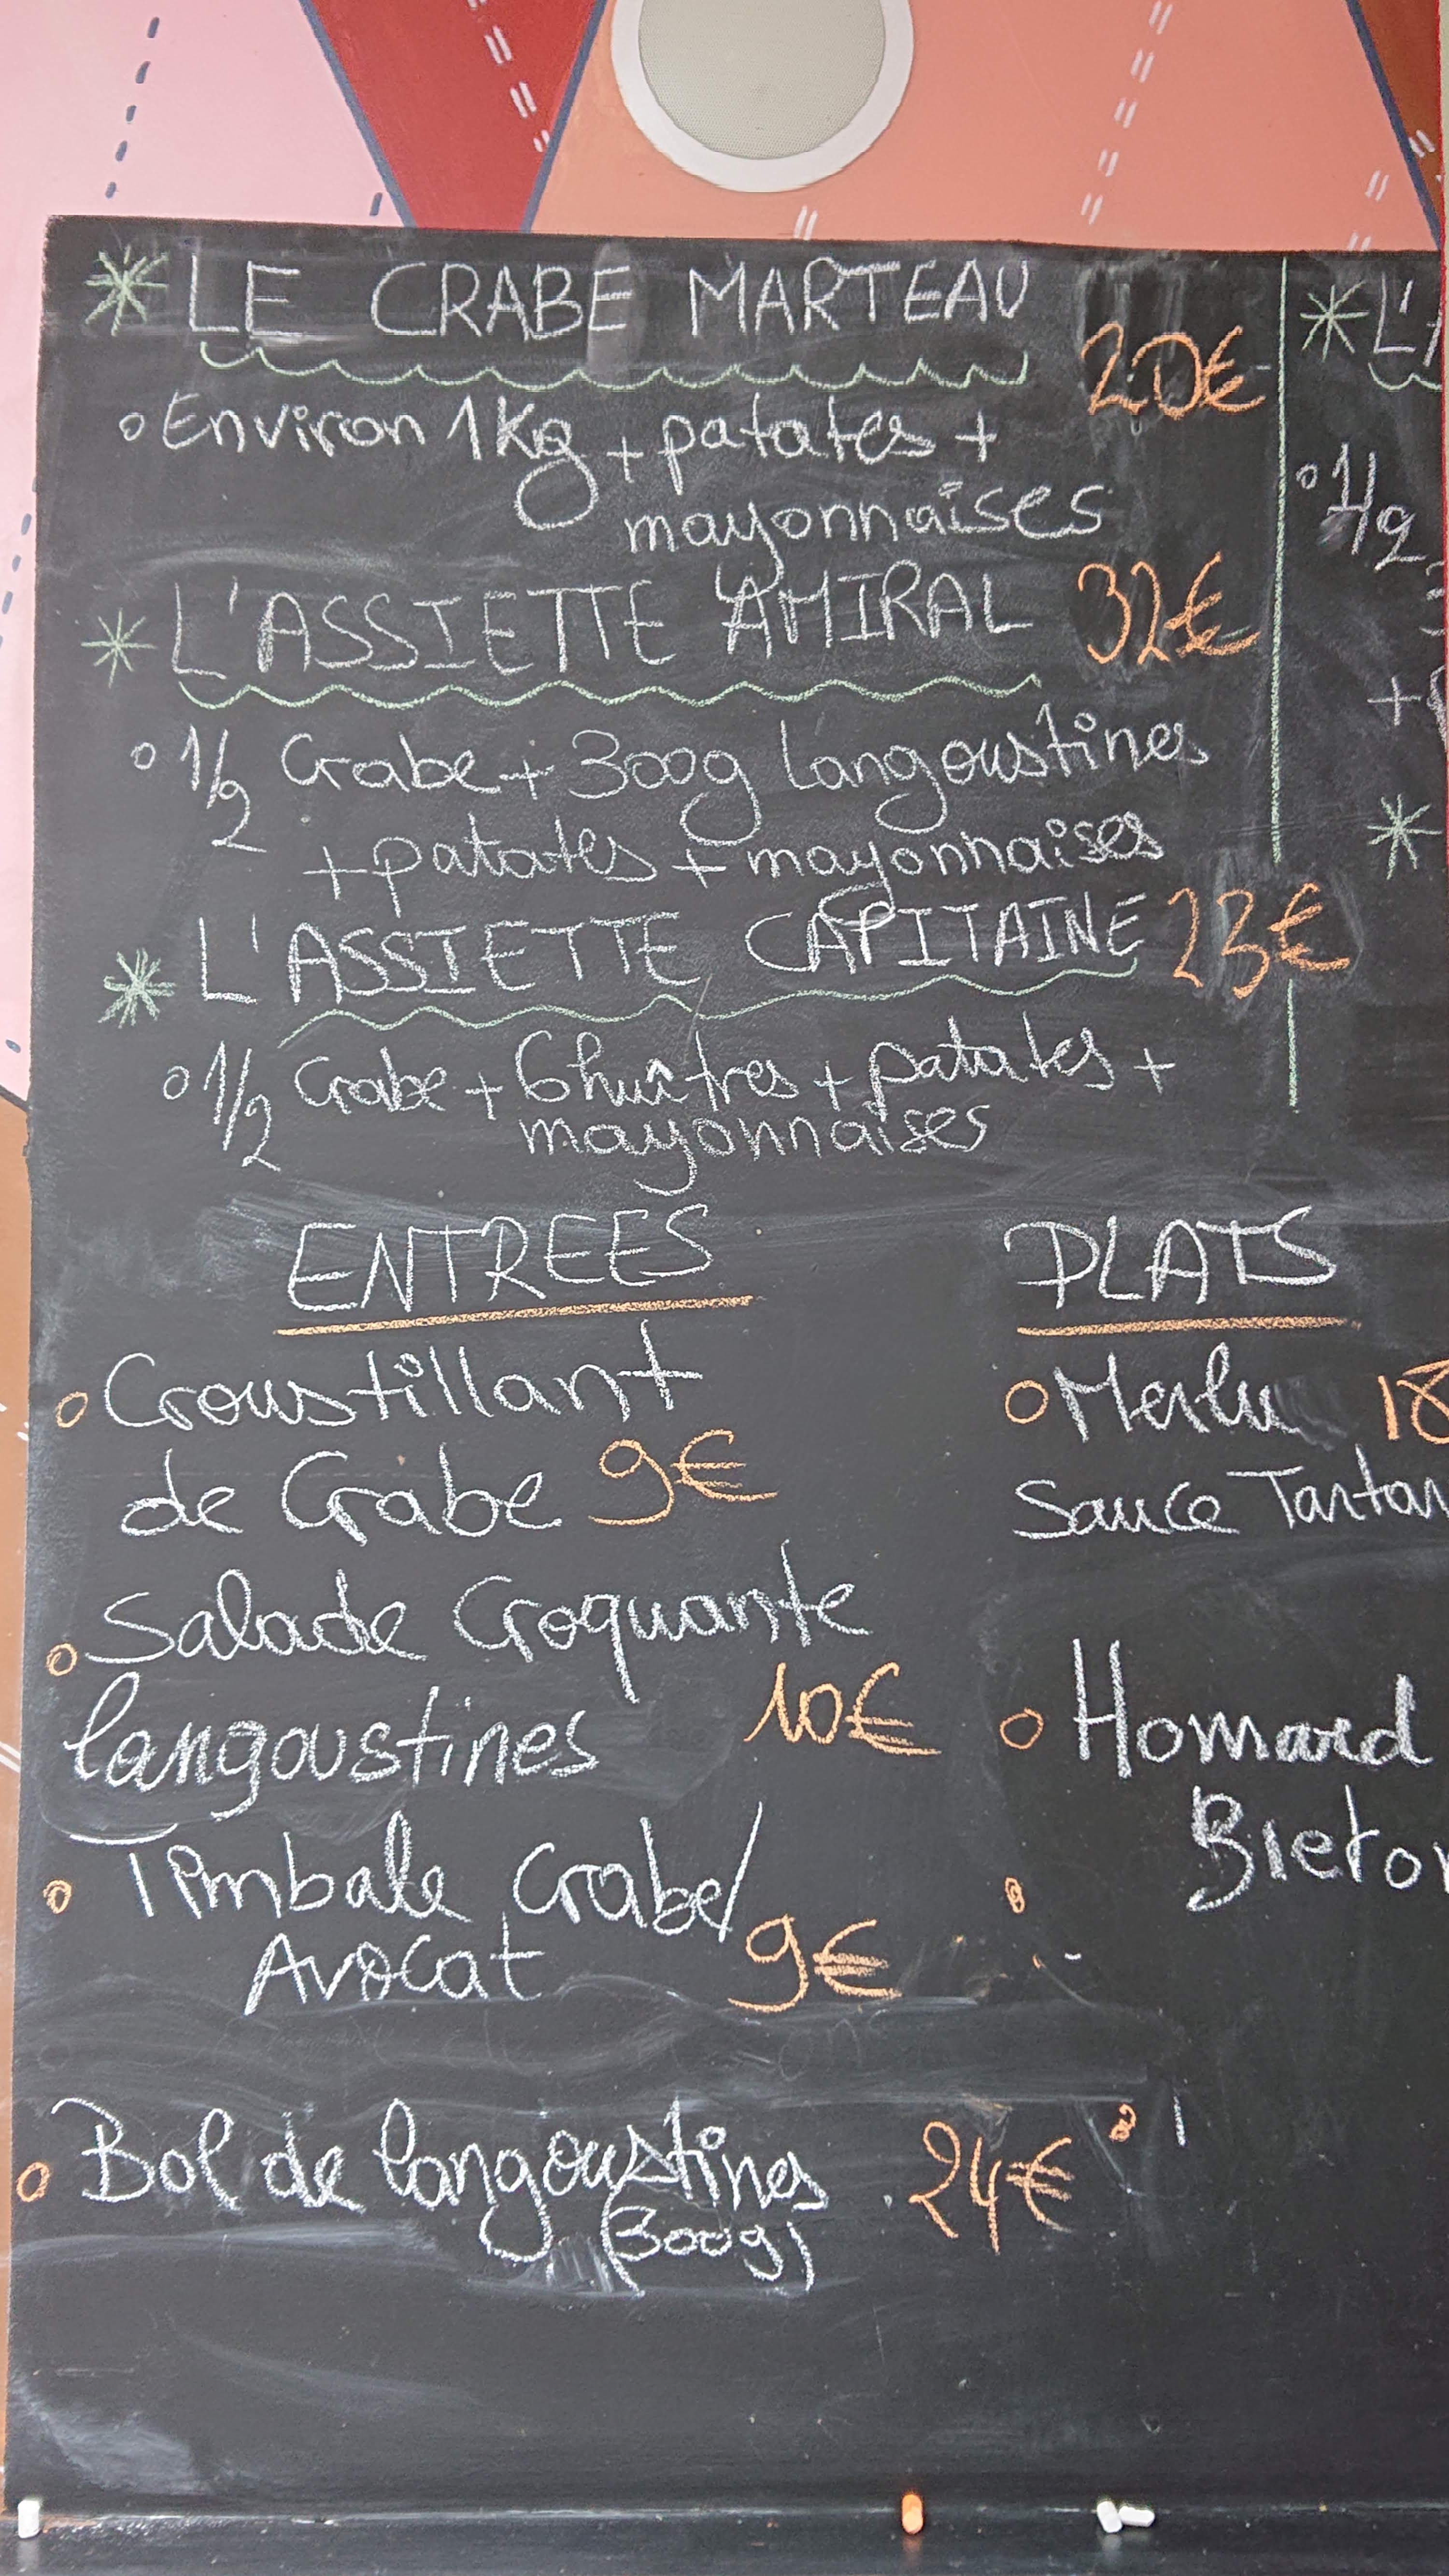 LE CRABE MARTEAU
20€
Environ 1Kg + patates +
mayonnaises
L'ASSIETTE AMIRAL 32€
1/2 Crabe + 300g langoustines
+ patates + mayonnaises
L'ASSIETTE CAPITAINE 23€
1/2 Crabe + 6 huîtres + patates +
mayonnaises
ENTREES
Croustillant
de Crabe 9€
Salade Croquante
langoustines 10€
Timbale Crabe/
Avocat 9€
Bol de langoustines 24€
(300g)
L'
1/2
+
PLATS
Merlu 18
Sauce Tartar
Homard
Breto